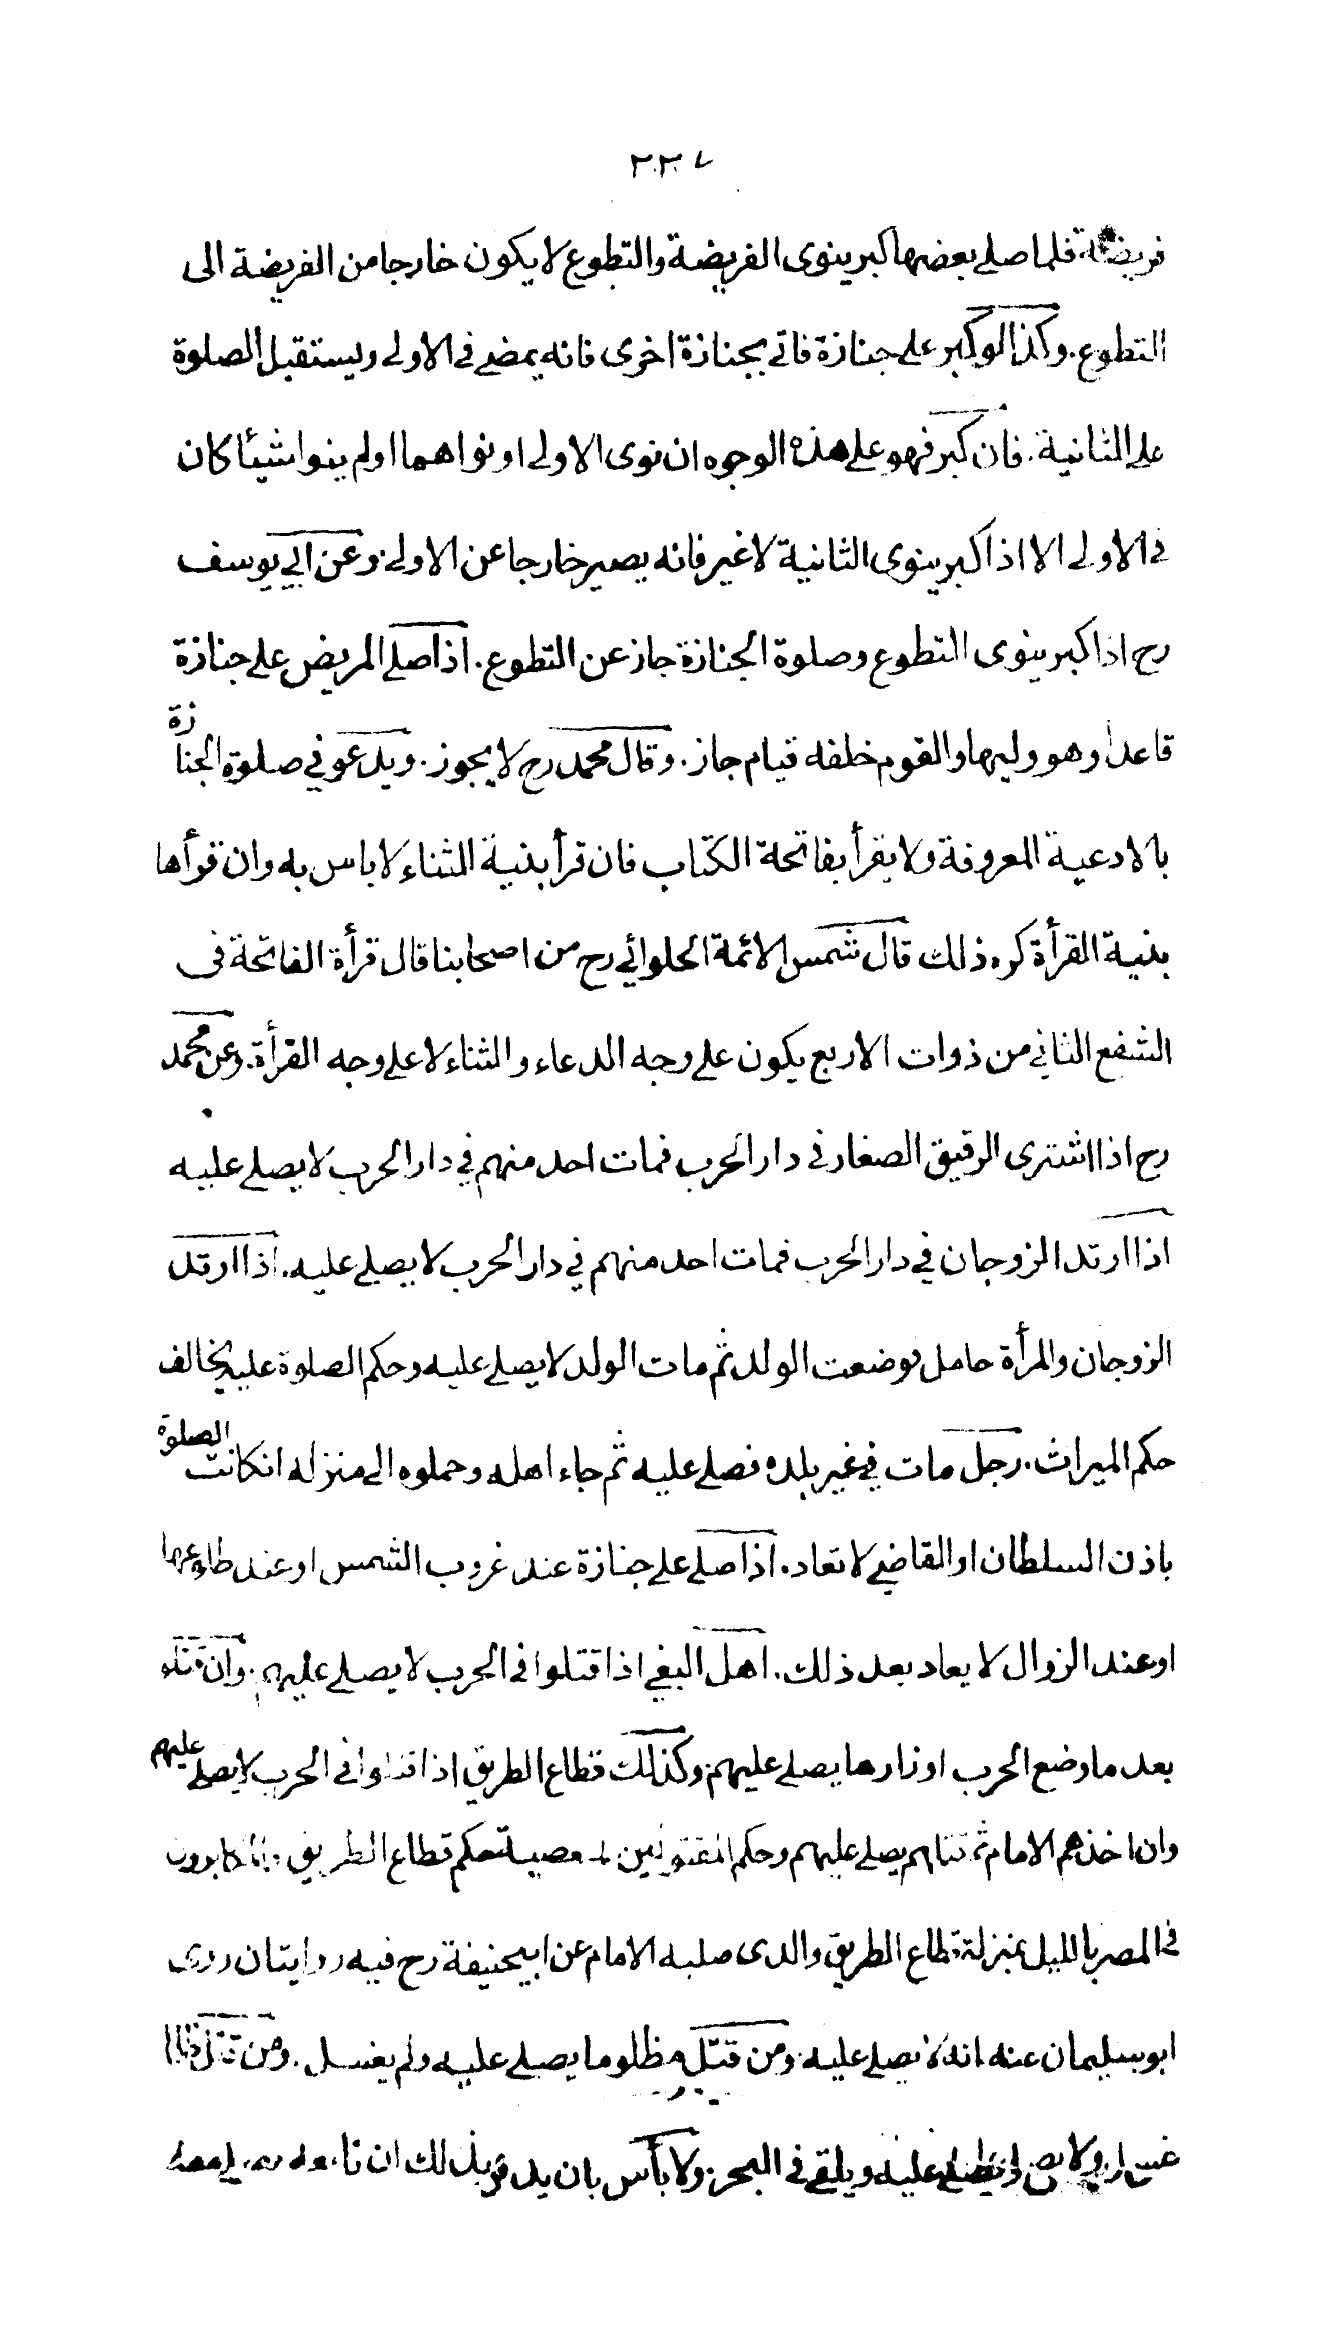 ٢٢٧
فريضة فلما صلے بعضها كبر ينوى الفريضة والتطوع لا يكون خارجا من الفريضة الى
التطوع. وكذا لو كبر على جنازة فاتي بجنازة اخرى فانه يمضے فى الاولى ويستقبل الصلوة
على الثانية. فان كبر فهو على هذه الوجوه ان نوى الاولى او نواهما او لم ينو اشيئا كان
فى الاولى الا اذا كبر ينوى الثانية لا غير فانه يصير خارجا عن الاولى. وعن ابي يوسف
رح اذا كبر ينوى التطوع وصلوة الجنازة جاز عن التطوع. اذا صلے المريض على جنازة
قاعدا وهو وليها والقوم خلفه قيام جاز. وقال محمد رح لا يجوز. ويدعو في صلوة الجنازة
بالادعية المعروفة ولا يقرأ بفاتحة الكتاب فان قرأ بنية الثناء لا باس به وان قرأها
بنية القرأة كره ذلك قال شمس الائمة الحلوائي رح من اصحابنا قال قرأة الفاتحة فى
الشفع الثاني من ذوات الاربع يكون على وجه الدعاء والثناء لا على وجه القرأة. وعن محمد
رح اذا اشترى الرقيق الصغار في دار الحرب فمات احد منهم في دار الحرب لا يصلے عليه
اذا ارتد الزوجان في دار الحرب فمات احد منهم في دار الحرب لا يصلے عليه. اذا ارتد
الزوجان والمرأة حامل فوضعت الولد ثم مات الولد لا يصلے عليه وحكم الصلوة عليه يخالف
حكم الميراث. رجل مات في غير بلده فصلے عليه ثم جاء اهله وحملوه الى منزله انكانت الصلوة
باذن السلطان او القاضي لا تعاد. اذا صلے على جنازة عند غروب الشمس او عند طلوعها
او عند الزوال لا يعاد بعد ذلك. اهل البغي اذا قتلوا فى الحرب لا يصلے عليهم. وان قتلو
بعد ما وضع الحرب اوزارها يصلے عليهم. وكذلك قطاع الطريق اذا قتلوا فى الحرب لا يصلے عليهم
وان اخذهم الامام ثم قتلهم يصلے عليهم وحكم المقتولين بالعصبية حكم قطاع الطريق والمكابرون
فى المصر بالليل بمنزلة قطاع الطريق والذى صلبه الامام عن ابيحنيفة رح فيه روايتان روى
ابو سليمان عنه انه لا يصلے عليه. ومن قتل مظلوما يصلے عليه ولم يغسل. ومن قتل ظالما
غسل ولا يصلى عليه ويلقى فى البحر. ولا بأس بان يد بذلك ان